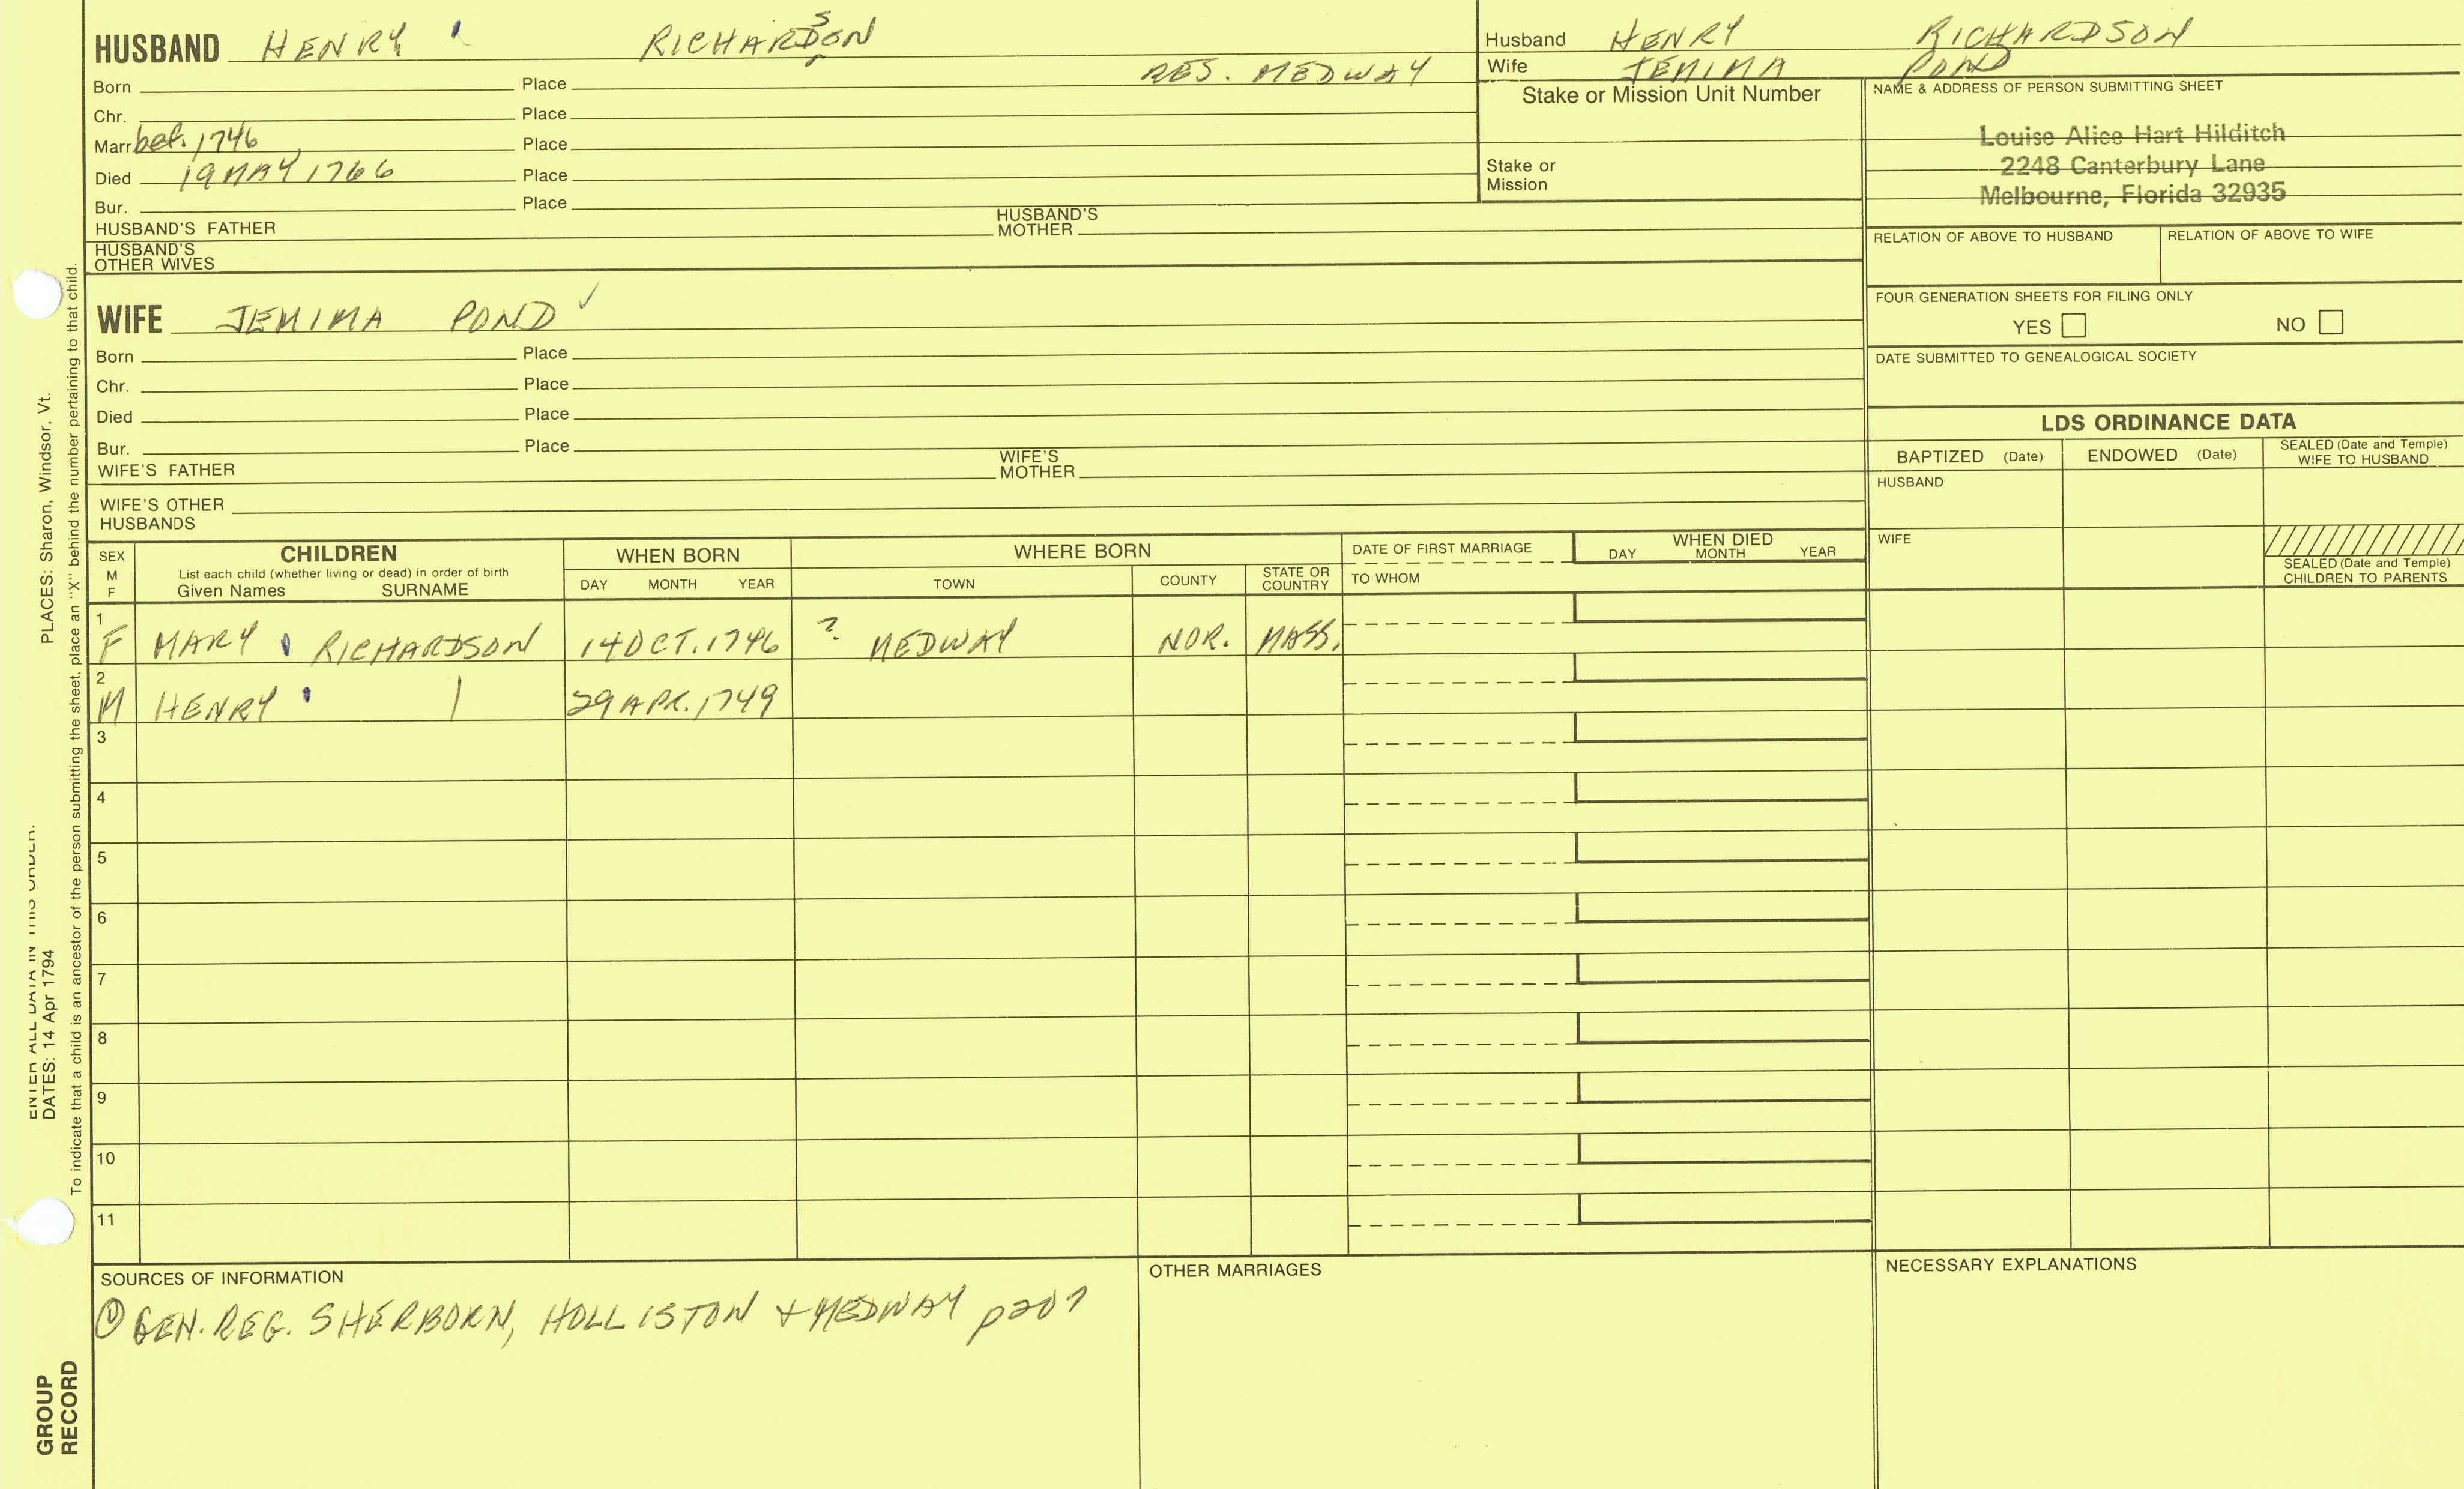 HUSBAND HENRY RICHARDSON
RES. MEDWAY
Born Place
Chr. Place
Marr. bef. 1746 Place
Died 19 MAY 1766 Place
Bur. Place
HUSBAND'S FATHER HUSBAND'S MOTHER
HUSBAND'S OTHER WIVES
Husband HENRY RICHARDSON
Wife JEMIMA POND
Stake or Mission Unit Number
Stake or Mission
NAME & ADDRESS OF PERSON SUBMITTING SHEET
Louise Alice Hart Hilditch
2248 Canterbury Lane
Melbourne, Florida 32935
RELATION OF ABOVE TO HUSBAND RELATION OF ABOVE TO WIFE
FOUR GENERATION SHEETS FOR FILING ONLY
YES NO
DATE SUBMITTED TO GENEALOGICAL SOCIETY
WIFE JEMIMA POND ✓
Born Place
Chr. Place
Died Place
Bur. Place
WIFE'S FATHER WIFE'S MOTHER
WIFE'S OTHER HUSBANDS
LDS ORDINANCE DATA
BAPTIZED (Date) ENDOWED (Date) SEALED (Date and Temple) WIFE TO HUSBAND
HUSBAND
WIFE
SEALED (Date and Temple) CHILDREN TO PARENTS
SEX M F
CHILDREN
List each child (whether living or dead) in order of birth
Given Names SURNAME
WHEN BORN
DAY MONTH YEAR
WHERE BORN
TOWN COUNTY STATE OR COUNTRY
DATE OF FIRST MARRIAGE
TO WHOM
WHEN DIED
DAY MONTH YEAR
1 F MARY RICHARDSON 14 OCT. 1746 ? MEDWAY NOR. MASS.
2 M HENRY 29 APR. 1749
3
4
5
6
7
8
9
10
11
SOURCES OF INFORMATION
① GEN. REG. SHERBORN, HOLLISTON + MEDWAY
OTHER MARRIAGES
NECESSARY EXPLANATIONS
ENTER ALL DATA IN THIS ORDER:
DATES: 14 Apr 1794 PLACES: Sharon, Windsor, Vt.
To indicate that a child is an ancestor of the person submitting the sheet, place an "X" behind the number pertaining to that child.
GROUP
RECORD